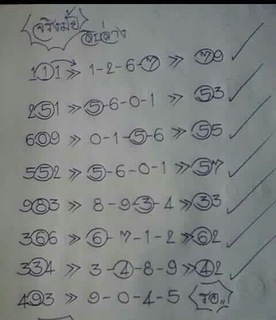 จริงมั้ย
สิบล่าง
111 » 1-2-6-7 » 79
251 » 5-6-0-1 » 53
609 » 0-1-5-6 » 55
552 » 5-6-0-1 » 57
983 » 8-9-3-4 » 33
366 » 6-7-1-2 » 62
334 » 3-4-8-9 » 42
493 » 9-0-4-5 รอ..